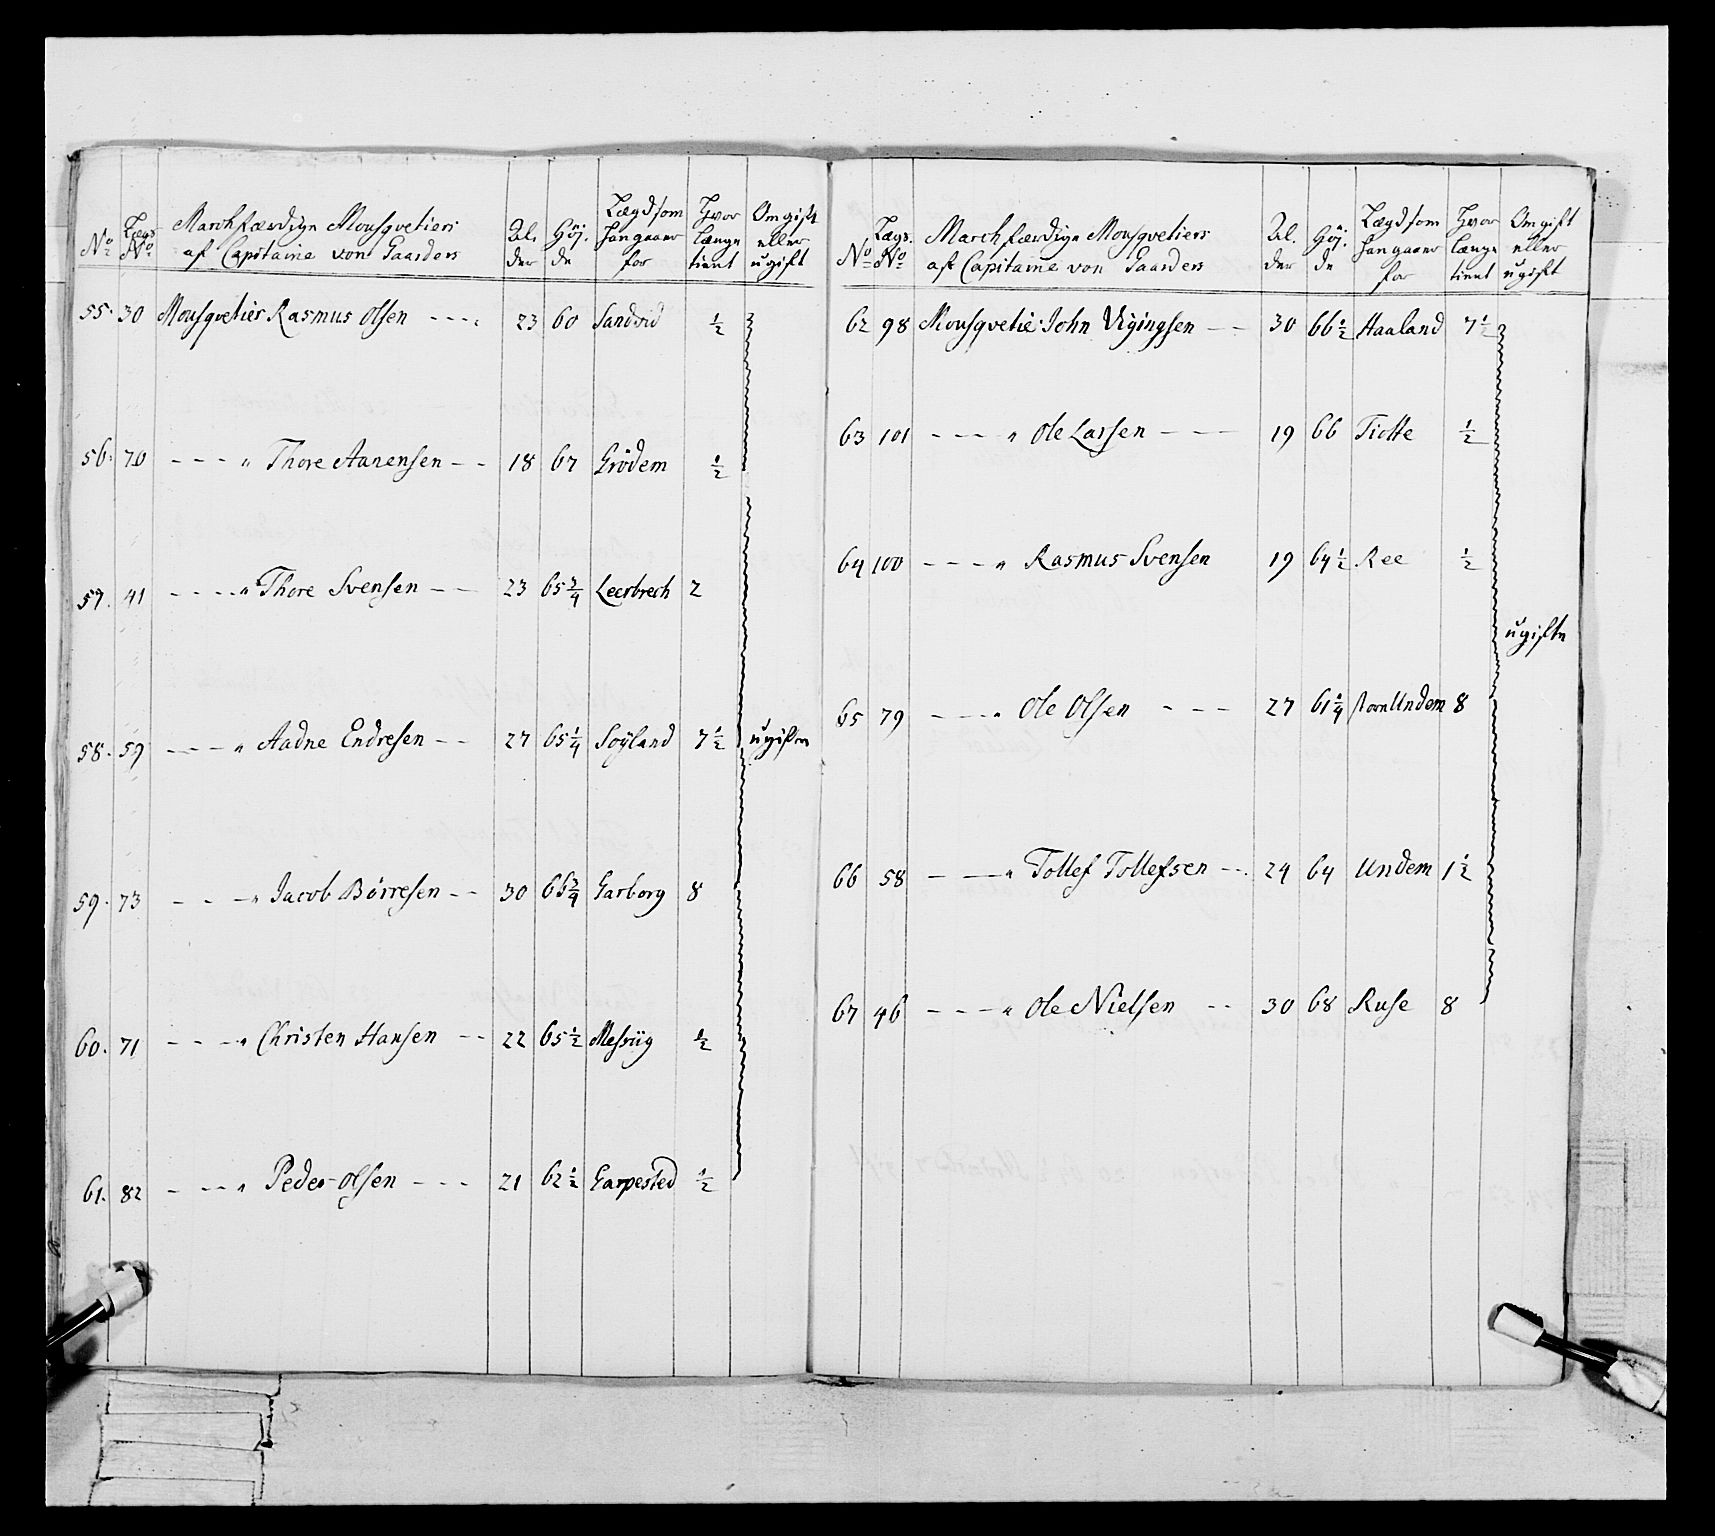 No
Lægs No
Marchfærdige Mousqvetiers
af Capitaine von Gaarders
Al.
der
Höj.
de
Lægd som
han gaaer
for
Hvor
længe
tient
Om gift
eller
ugift
55. 30 Mousqvetier Rasmus Olsen 23 60 Sandvid ½
56. 70 — — — " Thore Aanensen — — 18 67 Grödem ½
57. 41 — — — " Thore Svensen — — 23 65¾ Leerbrech 2
58. 59 — — — " Aadne Endresen — — 27 65¼ Söyland 7½ ugifte
59. 73 — — — " Jacob Börresen — — 30 66¾ Garborg 8
60. 71 — — — " Christen Hansen — — 22 65½ ½
61. 82 — — — " Peder Olsen — — — 21 62½ Garpested ½
No
Lægs. No
Marchfærdige Mousqvetiers
af Capitaine von Gaarders
Al.
der
Höj.
de
Lægd som
han gaaer
for
Hvor
længe
tient
Om gift
eller
ugift
62 98 Mousqvetier John Vigingsen — — 30 66½ Haaland 7½
63 101 — — — " Ole Larsen — — — 19 66 Tiotte ½
64 100 — — — " Rasmus Svensen 19 64½ Ree ½
ugifte
65 79 — — — " Ole Olsen — — — 27 61¼ Undem 8
66 58 — — " Tollef Tollefsen — — 24 64 Undem 1½
67 46 — — — " Ole Nielsen — — 30 68 Ruse 8